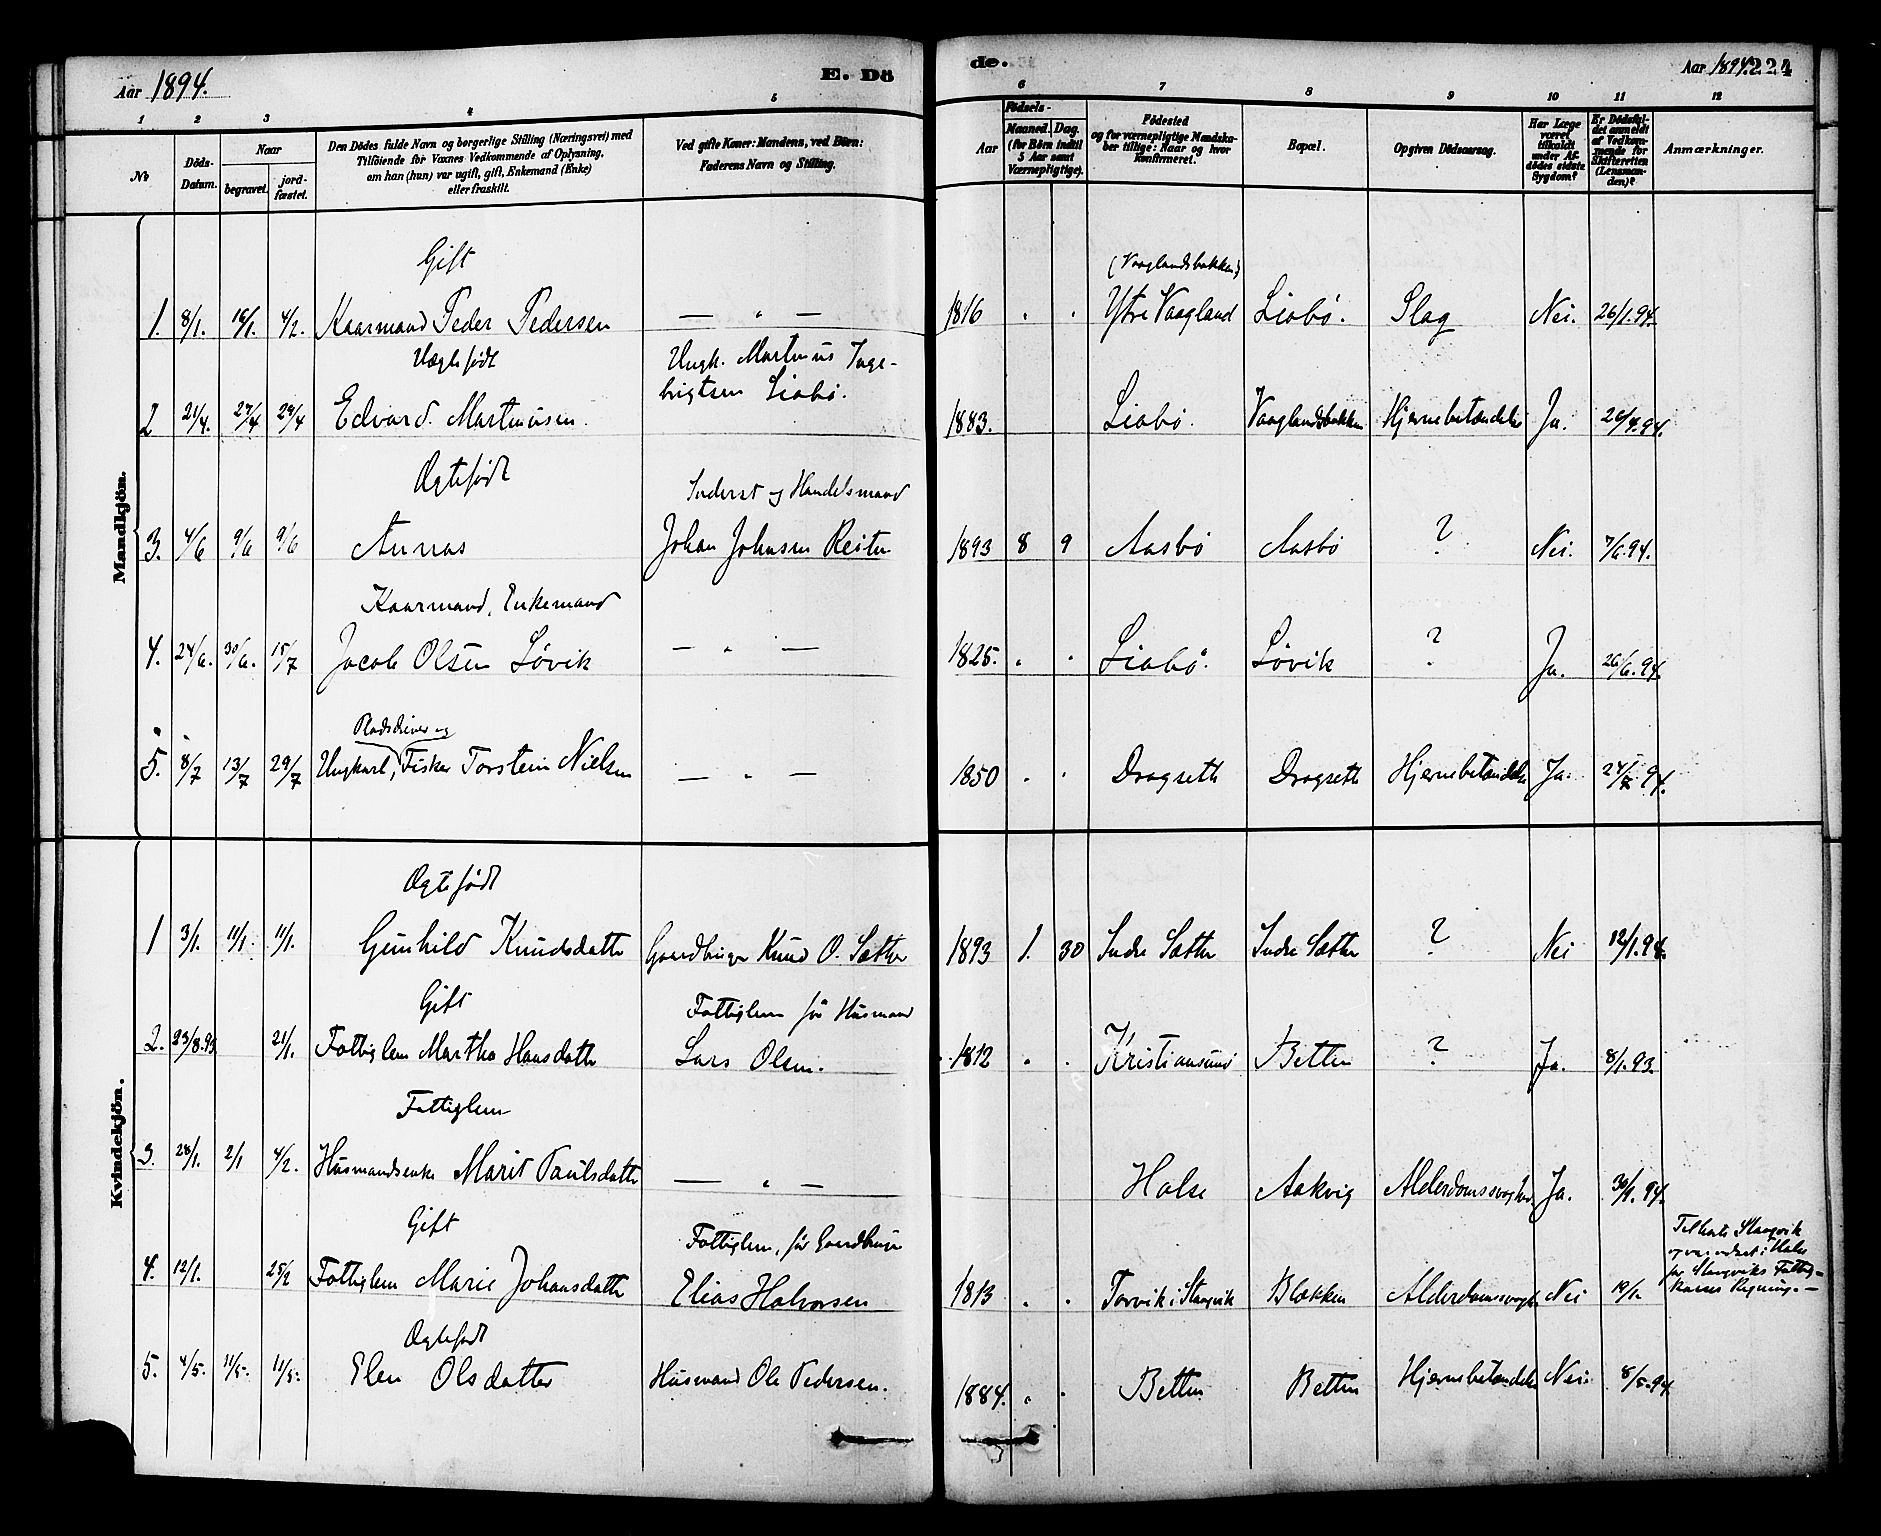 Aar 1894.
E. Dö
de.
Aar 1894. 224
1 2 3 4 5 6 7 8 9 10 11 12
No
Döds-Datum.
Naar
begravet.
jord-fæstet.
Den Dödes fulde Navn og borgerlige Stilling (Næringsvei) med
Tilföiende for Voxnes Vedkommende af Oplysning,
om han (hun) var ugift, gift, Enkemand (Enke)
eller fraskilt.
Ved gifte Koner: Mandens, ved Börn:
Faderens Navn og Stilling.
Aar
Födsels-
Maaned. Dag.
(for Börn indtil
5 Aar samt
Værnepligtige).
Födested
og for værnepligtige Mandska-
ber tillige: Naar og hvor
konfirmeret.
Bopæl.
Opgiven Dödsaarsag.
Har Læge
været
tilkaldt
under Af-
dödes sidste
Sygdom?
Er Dödsfal-
det anmeldt
af Vedkom-
mende for
Skifteretten
(Lensman-
den)?
Anmærkninger.
Mandkjön.
Gift
(Vaaglandsbakken)
1. 8/1. 16/1. 4/2. Kaarmand Peder Pedersen — " — 1816 . . Ytre Vaagland Liabø. Slag Nei. 26/1.94.
Uægtefødt
Ungk. Martinus Inge-
brigtsen Liabø.
2 21/4. 27/4 29/4 Edvard Martinusen. 1883. Liabø. Vaaglandsbakken Hjernebetændelse Ja. 26/4.94.
Ægtefødt
Inderst og Handelsmand
3. 4/6 9/6 9/6 Annas Johan Johnsen Reiten 1893 8 9 Aasbø Aasbø ? Nei. 7/6.94.
Kaarmand, Enkemand
4. 24/6. 30/6. 15/7 Jacob Olsen Løvik — " — 1825. . . Liabø. Løvik ? Ja. 26/6.94.
Pladsdriver og
5. 8/7 13/7 29/7 Ungkarl, Fisker Torstein Nielsen — " — 1850 . . Dragseth Dragseth Hjernebetændelse Ja. 24/7 94.
Kvindekjön.
Ægtefødt
1 3/1. 11/1. 11/1. Gunhild Knudsdatter Gaardbruger Knud O. Sætter 1893 1. 30 Indre Sætter Indre Sætter ? Nei 12/1.94.
Gift
Fattiglem før Husmand
2. 23/8.93 21/1. Fattiglem Martha Hansdatter Lars Olsen. 1812 . . Kristiansund Betten ? Ja. 8/1.93.
Fattiglem
3. 28/1. 2/1 4/2. Husmandsenke Marit Paulsdatter — " — Halse Aakvig Alderdomssvaghed Ja. 30/1.94.
Gift
Fattiglem, før Gaardbruger
4. 12/1. 25/2 Fattiglem Marie Johansdatter Elias Halvorsen 1813 . . Torvik i Stangvik Blekken Alderdomssvaghed Nei 19/1.
Tilhørte Stangvik
og var udsat i Halse
for Stangviks Fattig-
kasses Regning. —
Ægtefødt
5. 4/5. 11/5. 11/5. Elen Olsdatter Husmand Ole Pedersen. 1884. . . Betten Betten Hjernebetændelse Nei. 8/5.94.